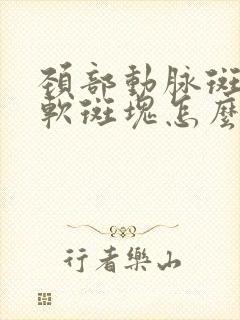 頚部動脉斑
軟斑塊怎麼
行者樂山